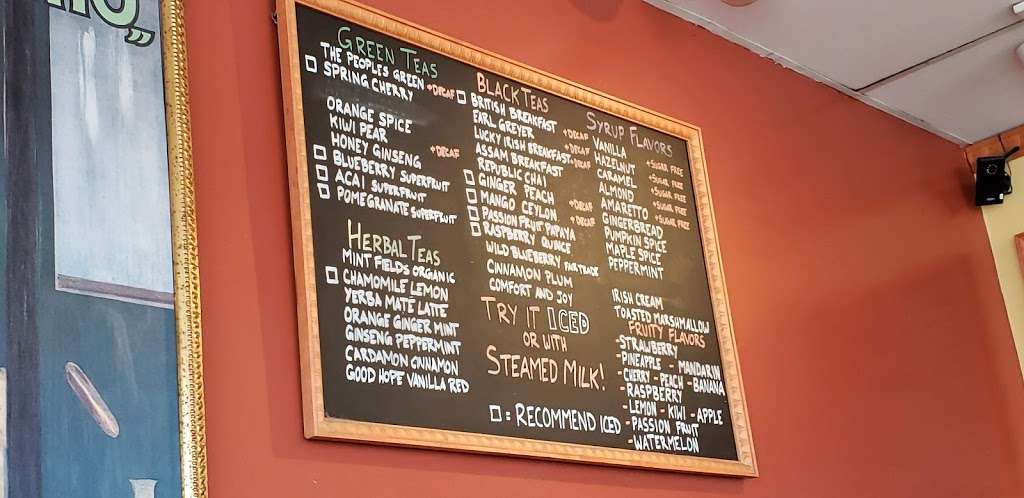 GREEN TEAS
THE PEOPLES GREEN +DECAF
SPRING CHERRY
ORANGE SPICE
KIWI PEAR
HONEY GINSENG +DECAF
BLUEBERRY SUPERFRUIT
ACAI SUPERFRUIT
POMEGRANATE SUPERFRUIT
HERBAL TEAS
MINT FIELDS ORGANIC
CHAMOMILE LEMON
YERBA MATE LATTE
ORANGE GINGER MINT
GINSENG PEPPERMINT
CARDAMON CINNAMON
GOOD HOPE VANILLA RED
BLACK TEAS
BRITISH BREAKFAST +DECAF
EARL GREYER +DECAF
LUCKY IRISH BREAKFAST +DECAF
ASSAM BREAKFAST
REPUBLIC CHAI
GINGER PEACH +DECAF
MANGO CEYLON +DECAF
PASSION FRUIT PAPAYA
RASPBERRY QUINCE
WILD BLUEBERRY FAIR TRADE
CINNAMON PLUM
COMFORT AND JOY
TRY IT ICED
OR WITH
STEAMED MILK!
□ = RECOMMEND ICED
SYRUP FLAVORS
VANILLA +SUGAR FREE
HAZELNUT +SUGAR FREE
CARAMEL +SUGAR FREE
ALMOND +SUGAR FREE
AMARETTO +SUGAR FREE
GINGERBREAD
PUMPKIN SPICE
MAPLE SPICE
PEPPERMINT
IRISH CREAM
TOASTED MARSHMALLOW
FRUITY FLAVORS
-STRAWBERRY
-PINEAPPLE - MANDARIN
-CHERRY - PEACH - BANANA
-RASPBERRY
-LEMON - KIWI - APPLE
-PASSION FRUIT
-WATERMELON